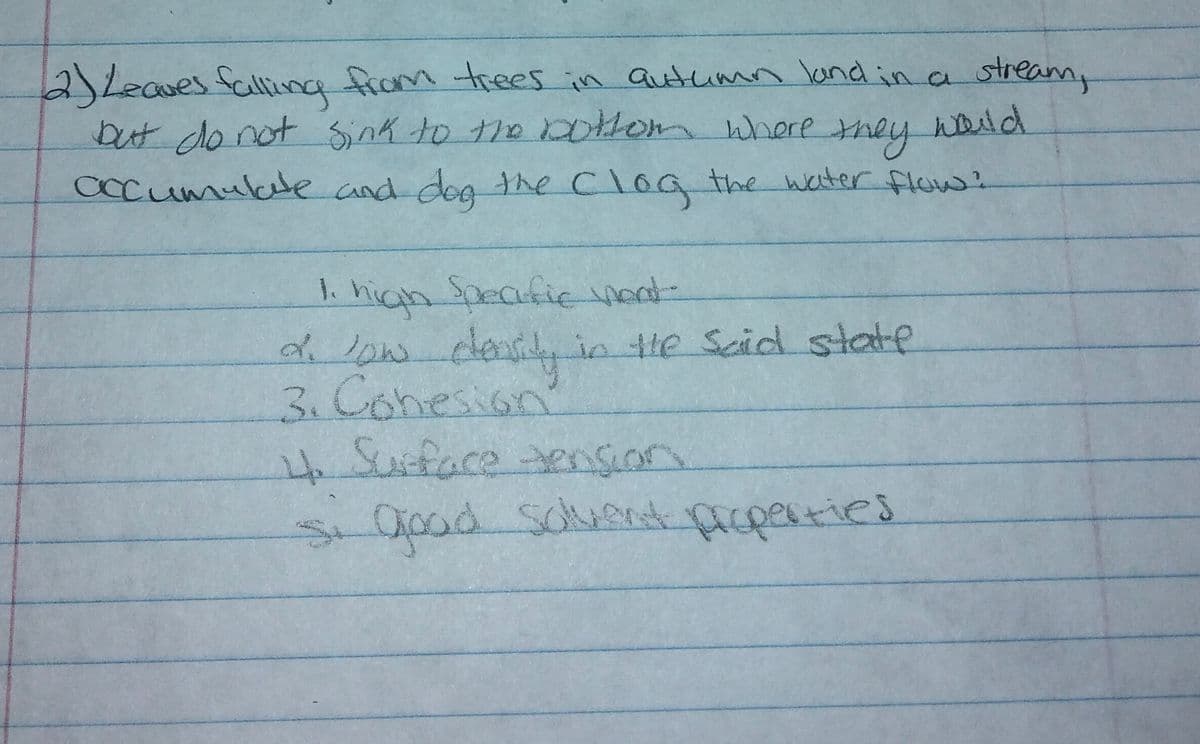 2) Leaves falling from trees in autumn land in a stream,
but do not sink to the bottom where they would
accumulate and dog the clog the water flow?
1. high Specific heat
2. low density in the Soid state
3. Cohesion
4. Surface tension
5. Good solvent properties